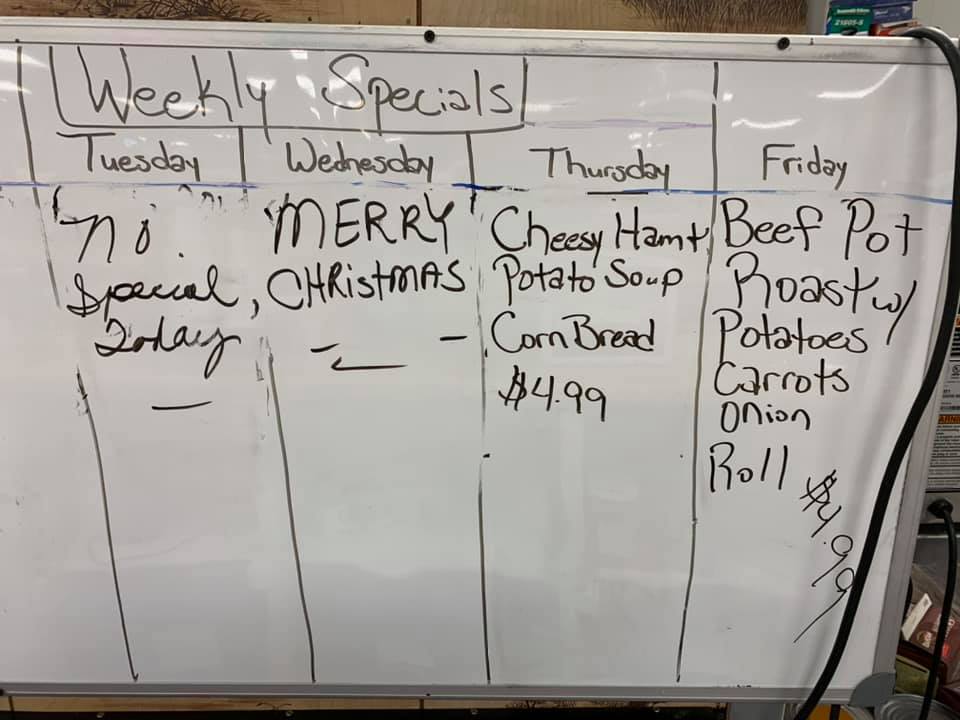 Weekly Specials
Tuesday
No
Special,
Today
Wednesday
MERRY
CHRISTMAS
Thursday
Cheesy Ham +
Potato Soup
Corn Bread
$4.99
Friday
Beef Pot
Roast w/
Potatoes
Carrots
Onion
Roll
$4.99
21805-5